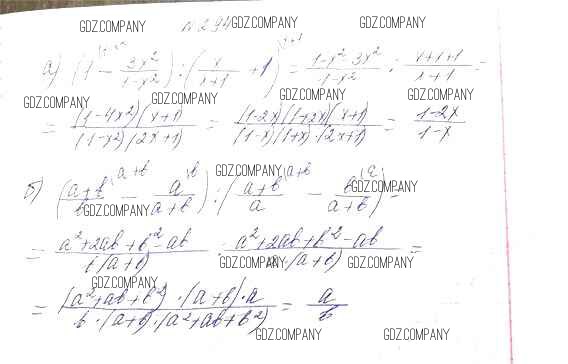 GDZ.COMPANY № 294 GDZ.COMPANY GDZ.COMPANY
а) (1 - 3x²/(1-x²)) : (x/(x+1) + 1) = (1-x²-3x²)/(1-x²) : (x+x+1)/(x+1) =
GDZ.COMPANY GDZ.COMPANY GDZ.COMPANY
= (1-4x²)(x+1)/((1-x²)(2x+1)) = (1-2x)(1+2x)(x+1)/((1-x)(1+x)·(2x+1)) = (1-2x)/(1-x)
GDZ.COMPANY GDZ.COMPANY
б) ((a+b)/b - a/(a+b)) : ((a+b)/a - b/(a+b)) =
GDZ.COMPANY
= (a²+2ab+b²-ab)/(b(a+b)) : (a²+2ab+b²-ab)/(a·(a+b)) =
GDZ.COMPANY GDZ.COMPANY
GDZ.COMPANY
= (a²+ab+b²)·(a+b)·a/(b·(a+b)·(a²+ab+b²)) = a/b
GDZ.COMPANY GDZ.COMPANY